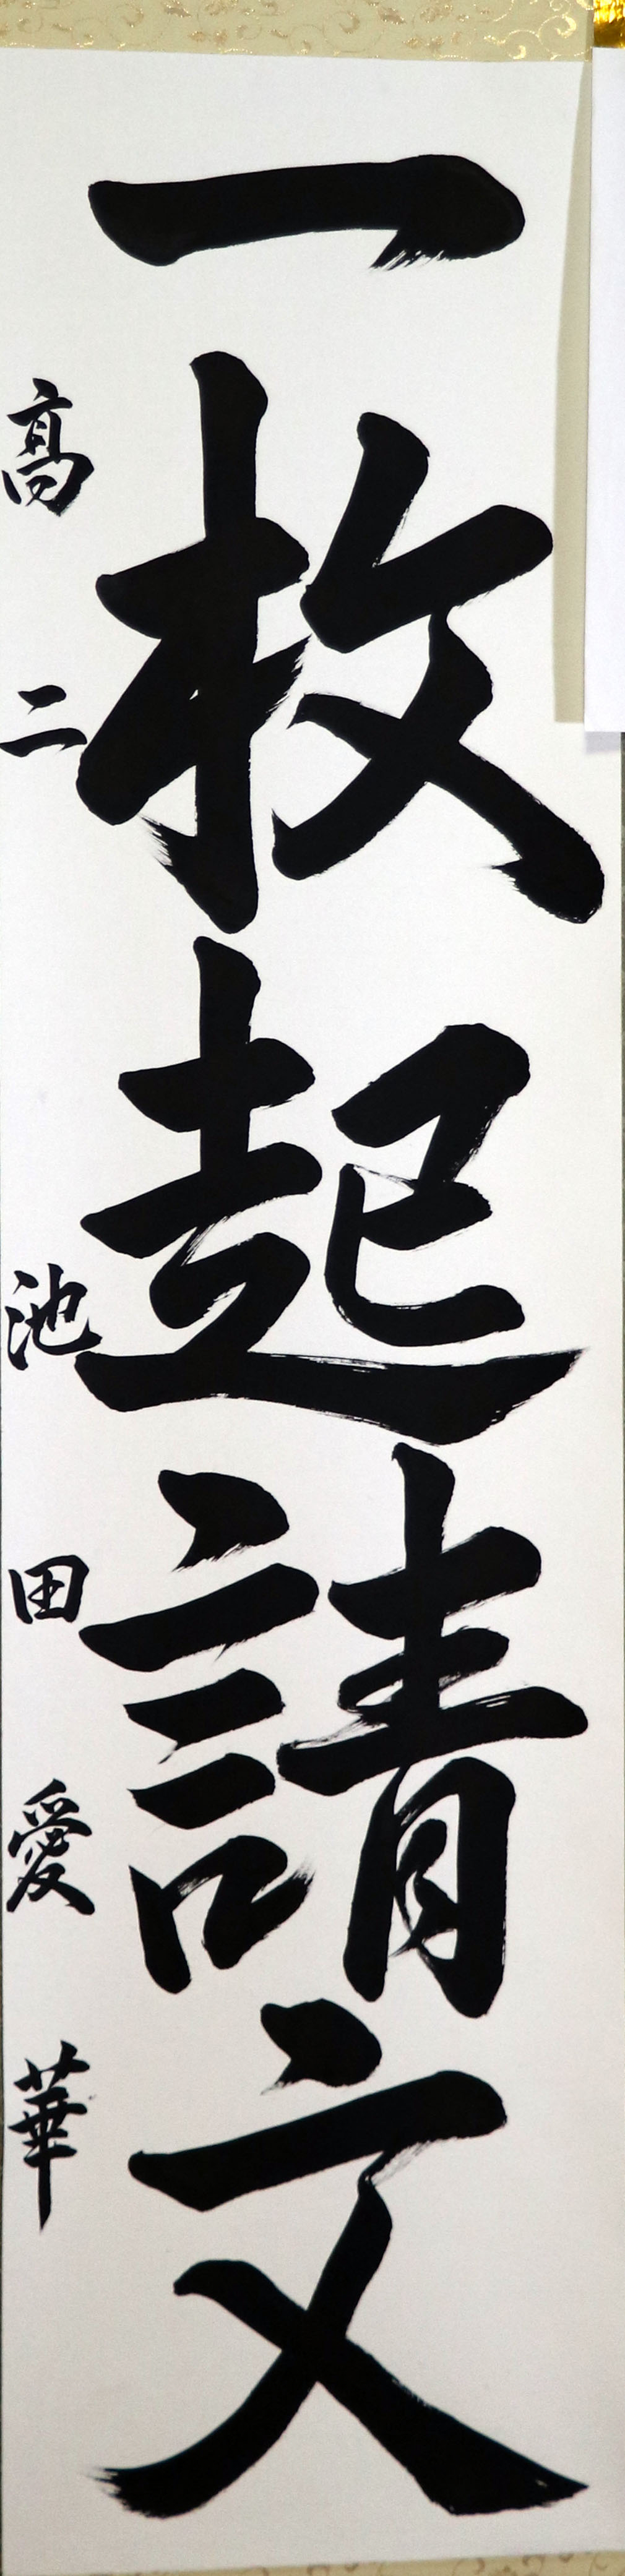 一枚起請文
高二 池田愛華